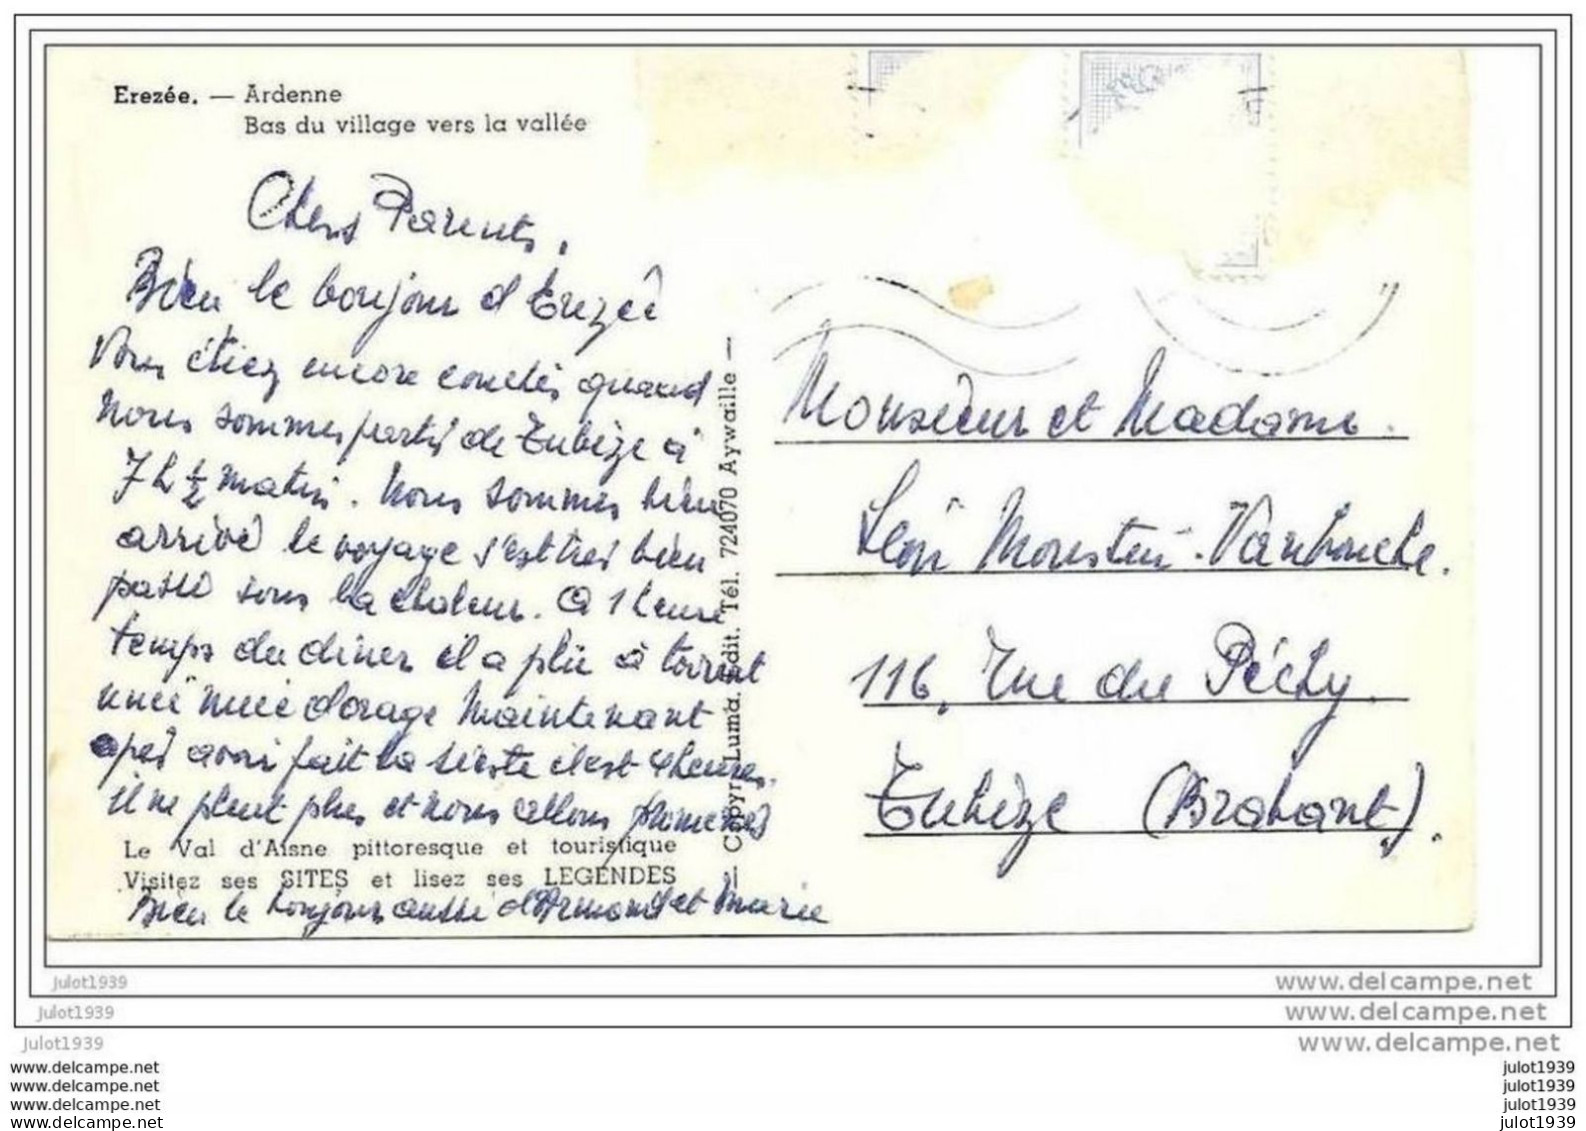 Erezée. — Ardenne
Bas du village vers la vallée
Chers Parents,
Bien le bonjour d'Erezée
Vous étiez encore couchés quand
nous sommes partis de Tubize à
7 h ½ matin. Nous sommes bien
arrivé le voyage s'est tres bien
passé sous la chaleur. A 1 heure
temps du diner il a plu à torrent
une nuée d'orage Maintenant
apès avoir fait la sieste il est 4 heures.
il ne pleut plus et nous allons promener
Le Val d'Aisne pittoresque et touristique
Visitez ses SITES et lisez ses LEGENDES
Bien le bonjour aussi d'Armand et Marie
— Copyr. Luma. Edit. Tél. 724070 Aywaille —
Monsieur et Madame.
Léon
116, Rue du Péchy.
Tubize (Brabant).
julot1939
julot1939
julot1939
www.delcampe.net
www.delcampe.net
www.delcampe.net
www.delcampe.net
www.delcampe.net
www.delcampe.net
www.delcampe.net
julot1939
julot1939
julot1939
julot1939